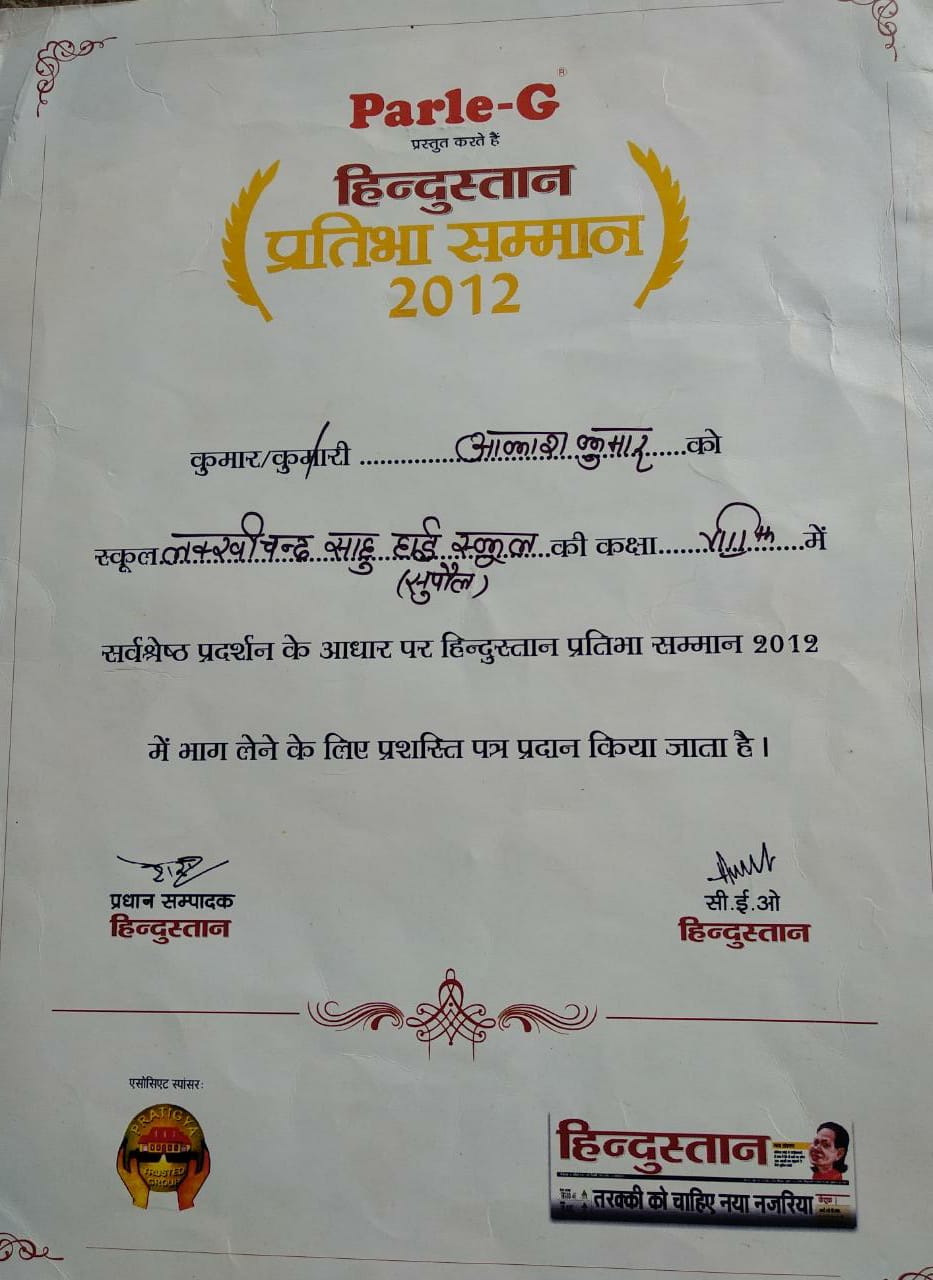 Parle-G®
प्रस्तुत करते हैं
हिन्दुस्तान
प्रतिभा सम्मान
2012
कुमार/कुमारी ..................आकाश कुमार......को
स्कूल लक्ष्खीचन्द्र साहु हाई स्कूल की कक्षा.......VIIIth.......में
(सुपौल)
सर्वश्रेष्ठ प्रदर्शन के आधार पर हिन्दुस्तान प्रतिभा सम्मान 2012
में भाग लेने के लिए प्रशस्ति पत्र प्रदान किया जाता है।
प्रधान सम्पादक
हिन्दुस्तान
सी.ई.ओ
हिन्दुस्तान
एसोसिएट स्पांसर:
PRATIGYA
TRUSTED
GROUP
हिन्दुस्तान
तरक्की को चाहिए नया नजरिया